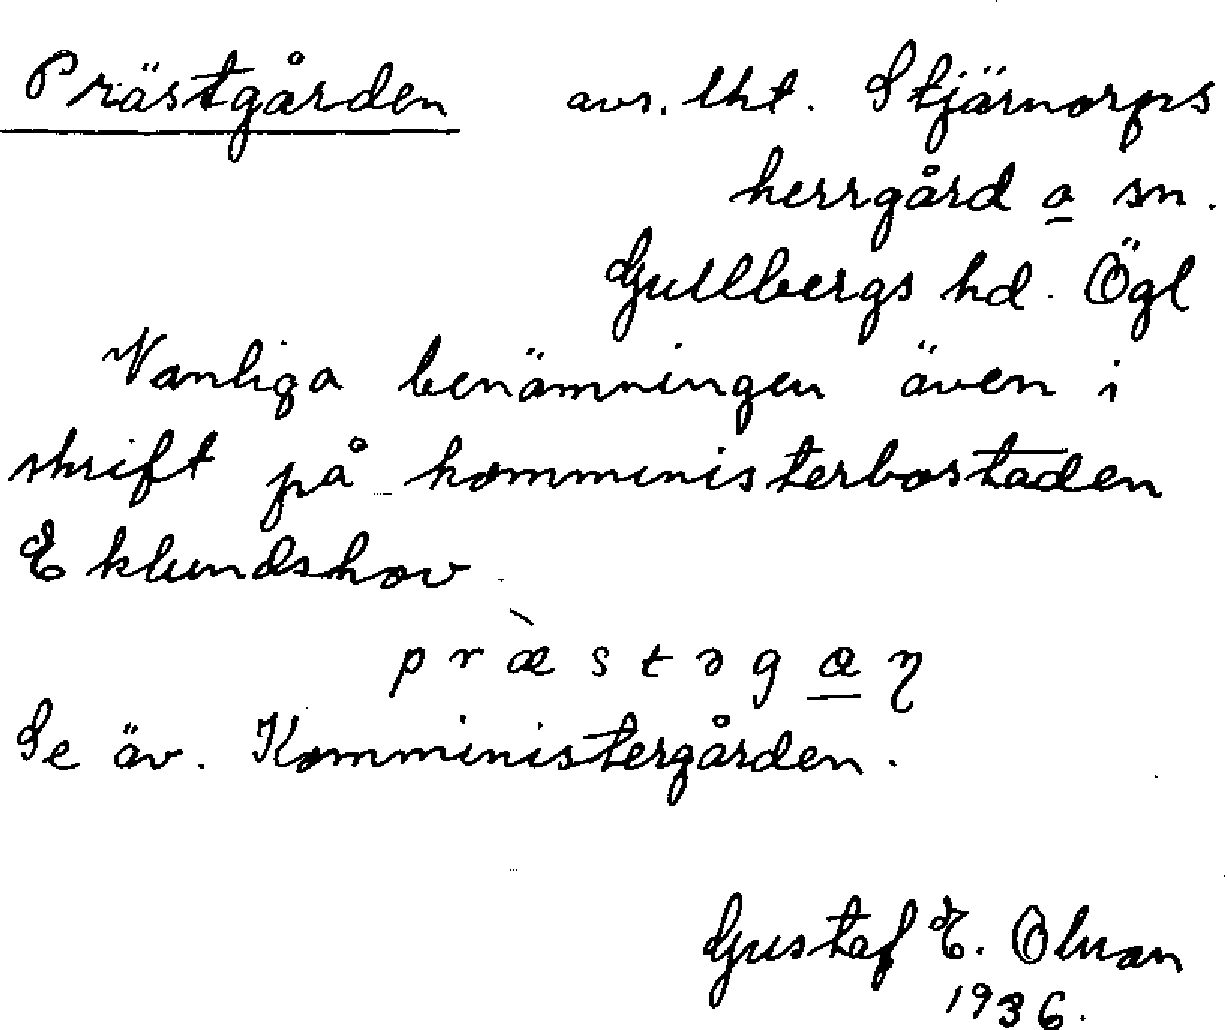 Prästgården avs. lht. Stjärnorps
herrgård o sn.
Gullbergs hd. Ögl
Vanliga benämningen även i
skrift på komministerbostaden
Eklundshov
pr æ̀ s t ə g a ŋ
Se äv. Komministergården.
Gustaf E.
1936.